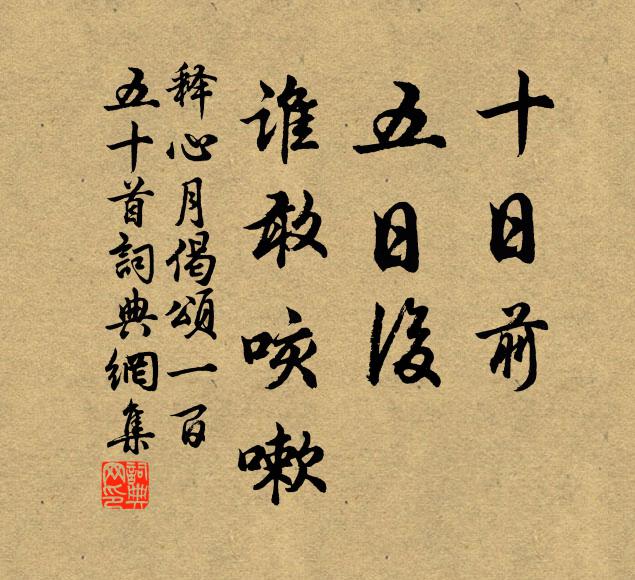 十日前
五日後
誰敢咳嗽
释心月偈頌一百
五十首詞典網集
詞典网印